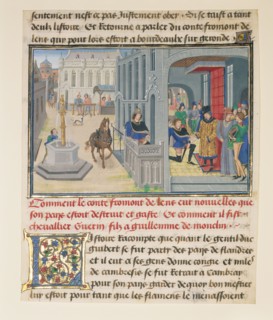 sentement nest ce pas justement obei Si se taist a tant
deulx listoire Et retourne a parler du conte fromont de
lens qui pour lors estoit a bourdeaulx sur geronde
Comment le conte fromont de lens eut nouvelles que
son pays estoit destruit et gaste Et comment il fist
chevallier Guerin filz a guillemme de monclin
Listoire racompte que quant le gentil duc
guibert se fut party des pays de flandres
et il eut a ses gens donne congie et
de cambresis se fut retrait a Cambray
pour son pays garder de quoy bon mestier
lui estoit pour tant que les flamens le menassoient